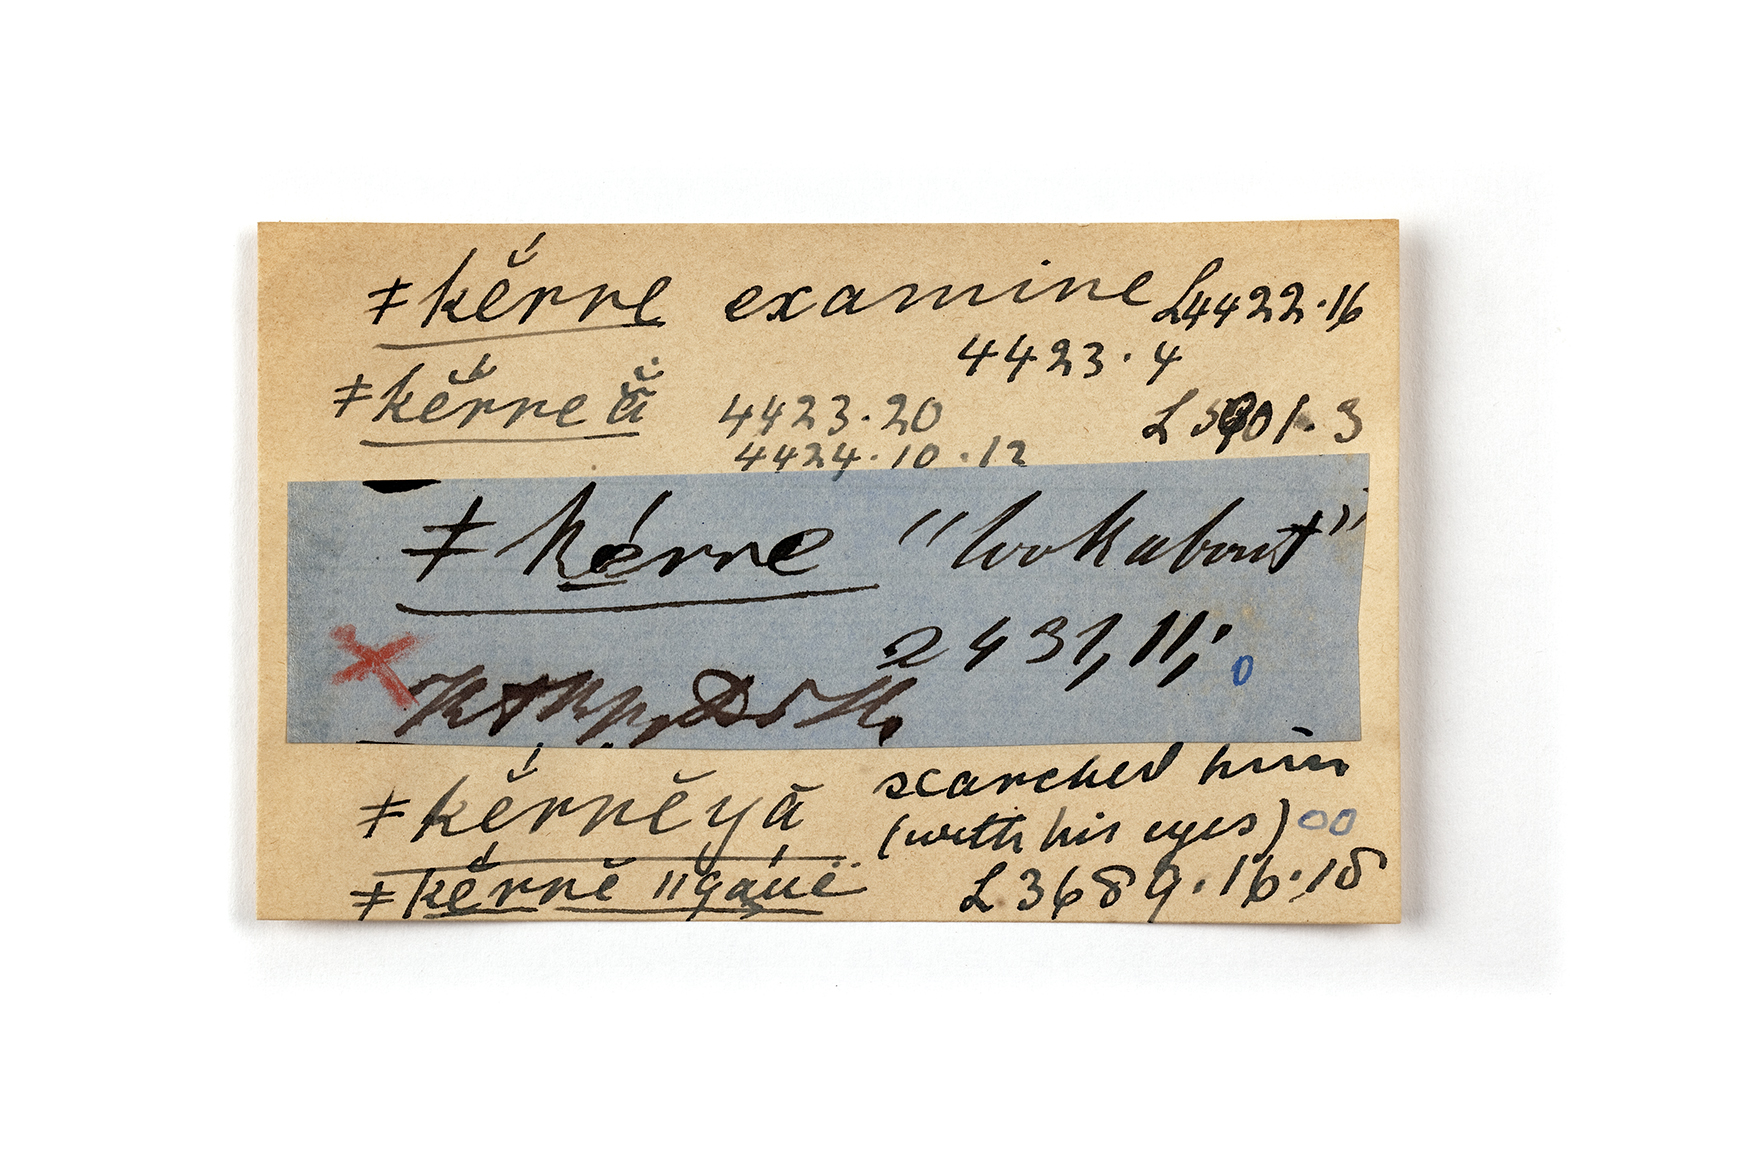 ǂkĕ́rre examine L4422.16
4423.4
ǂkĕ́rre ă̈ 4423.20 L 5901.3
4424.10.12
ǂkérre "look about"
2431, 11;
ǂkĕ́rrĕ yā searched him
(with his eyes)
ǂkĕ́rrĕ L3689.16.18